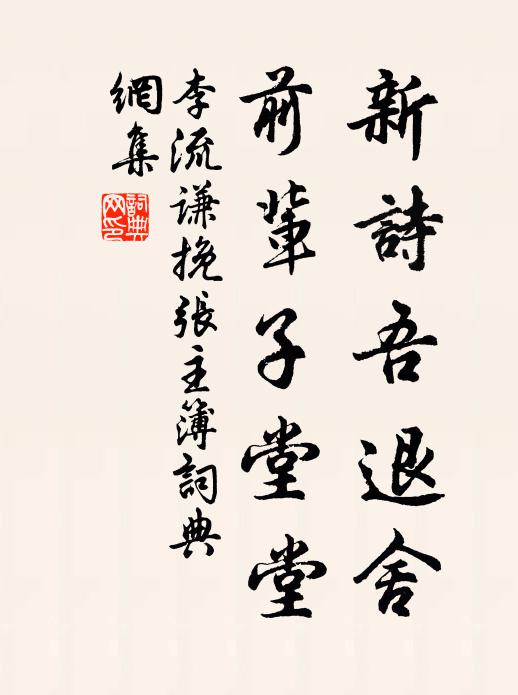 新詩吾退舍
前輩子堂堂
李流謙挽張主簿詞典
網集
詞典網印